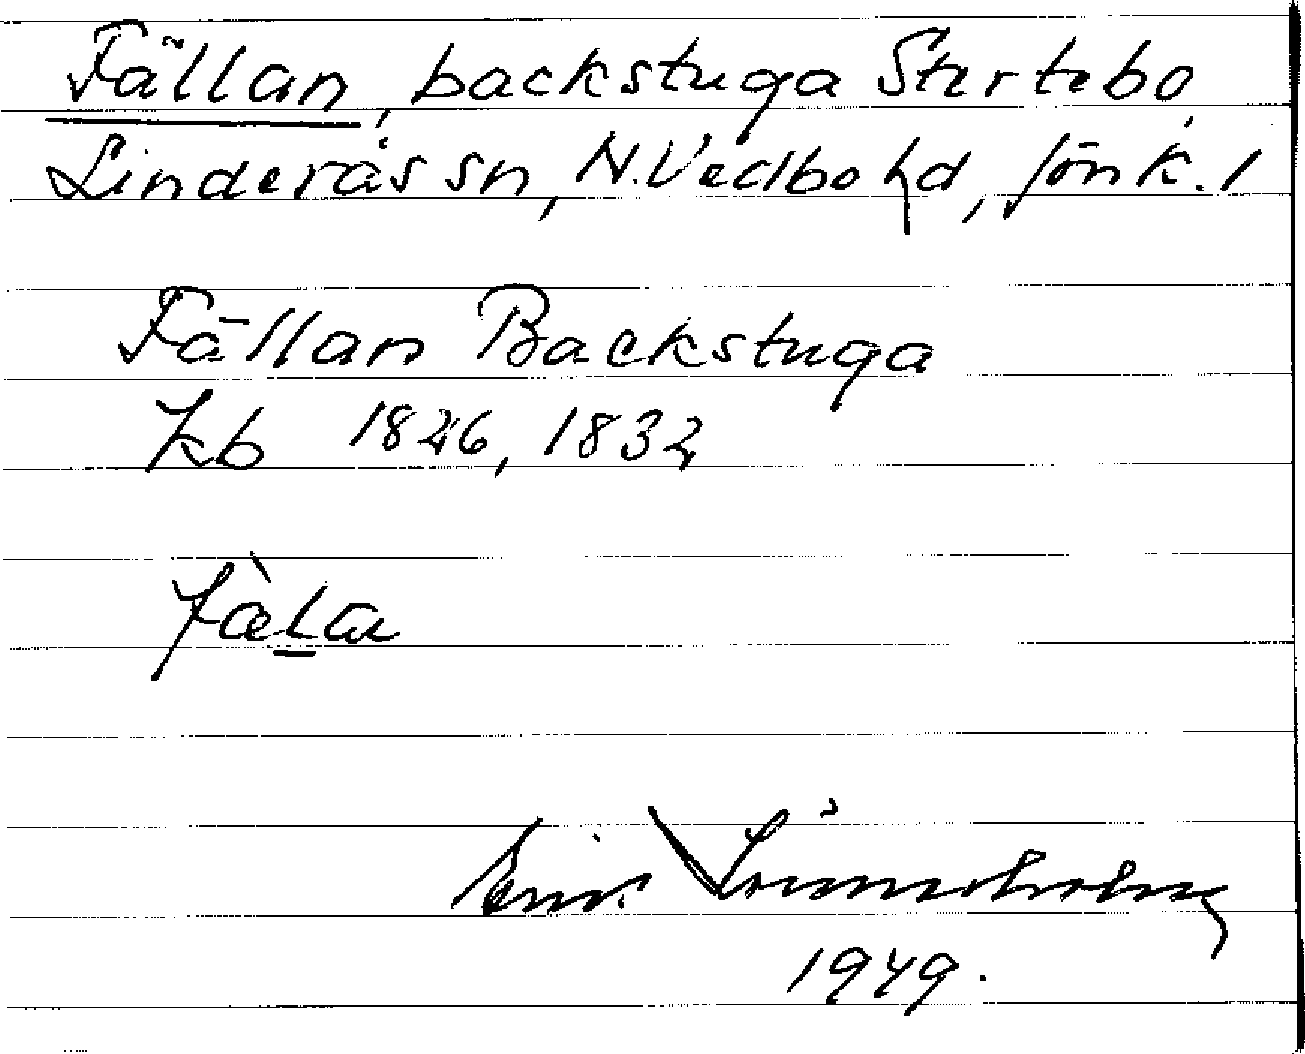 Fällan, backstuga Stertebo,
Linderås sn, N. Vedbo hd, Jönk. l
Fällan Backstuga
Kb 1826, 1832
fàLa
1949.